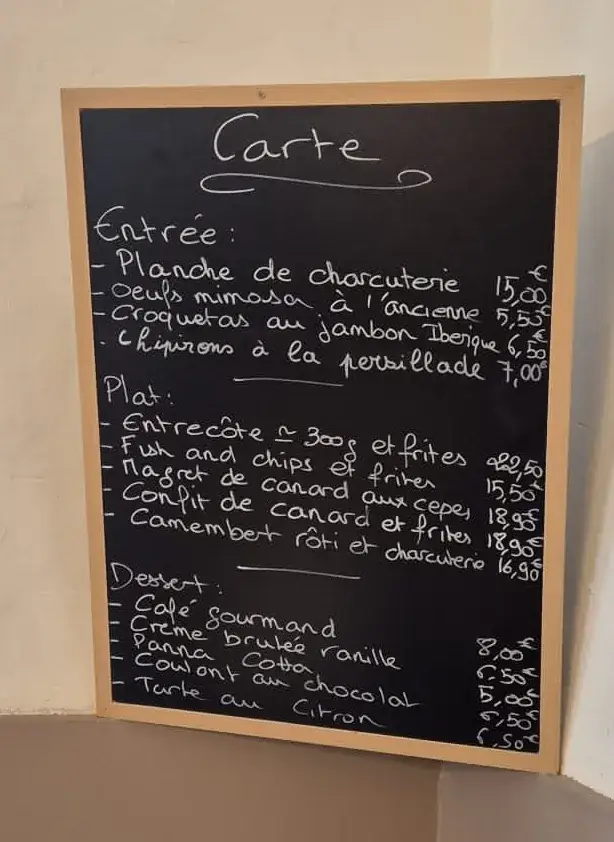 Carte
Entrée :
- Planche de charcuterie 15,00€
- Oeufs mimosa à l'ancienne 5,50€
- Croquetas au jambon Iberique 6,50€
- Chipirons à la persillade 7,00€
Plat :
- Entrecôte ≃ 300g et frites 22,50
- Fish and chips et frites 15,50€
- Magret de canard aux cepes 18,95€
- Confit de canard et frites 18,90€
- Camembert rôti et charcuterie 16,90€
Dessert :
- Café gourmand 8,00€
- Crème brulée vanille 6,50€
- Panna Cotta 5,00€
- Coulant au chocolat 6,50€
- Tarte au Citron 6,50€